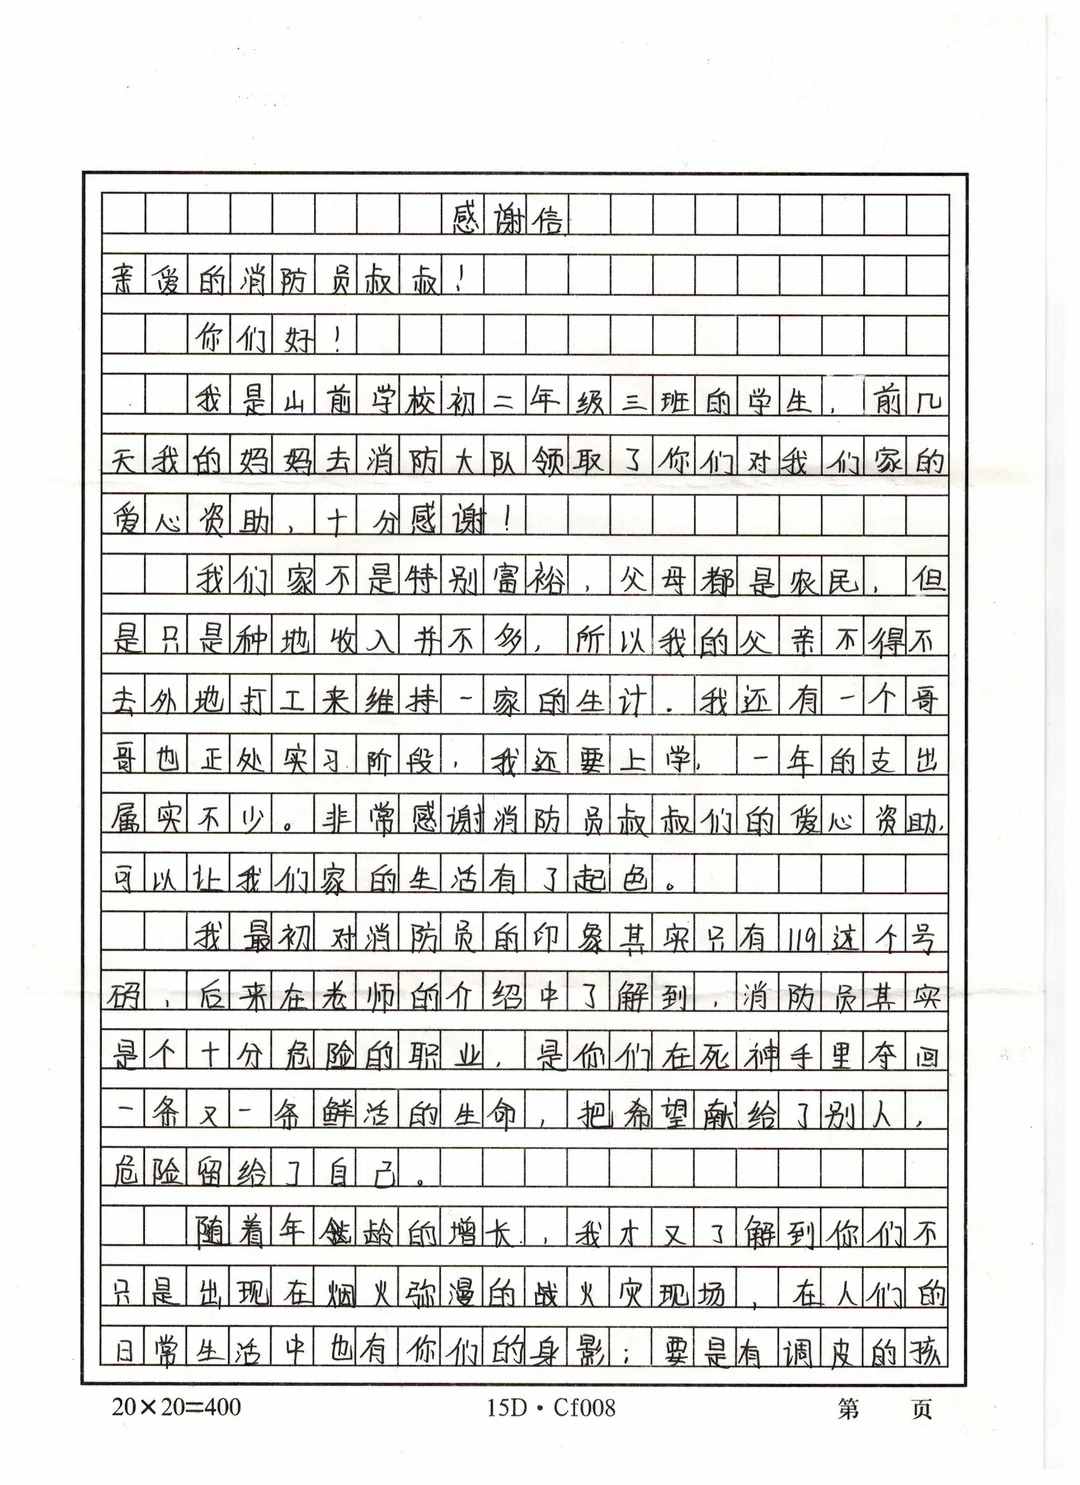 感谢信
亲爱的消防员叔叔！
你们好！
我是山前学校初二年级三班的学生，前几
天我的妈妈去消防大队领取了你们对我们家的
爱心资助，十分感谢！
我们家不是特别富裕，父母都是农民，但
是只是种地收入并不多，所以我的父亲不得不
去外地打工来维持一家的生计．我还有一个哥
哥也正处实习阶段，我还要上学，一年的支出
属实不少。非常感谢消防员叔叔们的爱心资助，
可以让我们家的生活有了起色。
我最初对消防员的印象其实只有119这个号
码，后来在老师的介绍中了解到，消防员其实
是个十分危险的职业，是你们在死神手里夺回
一条又一条鲜活的生命，把希望献给了别人，
危险留给了自己。
随着年龄的增长，我才又了解到你们不
只是出现在烟火弥漫的战火灾现场，在人们的
日常生活中也有你们的身影；要是有调皮的孩
20×20=400 15D·Cf008 第 页